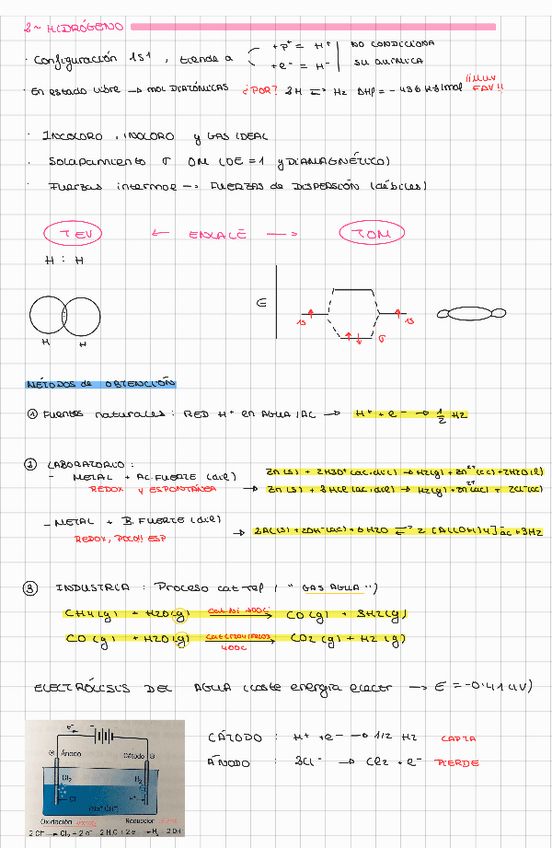 2~ HIDRÓGENO
· Configuración 1S1, tiende a
+p+ = H+
+e- = H-
NO CONDICIONA
SU QUIMICA
· En estado libre → mol DIATÓMICAS ¿POR? 2H ⇌ H2 ΔHf = - 436 KJ/mol
FAV!!
· INCOLORO, INOLORO y GAS IDEAL
· Solapamiento σ OM (OE = 1 y DIAMAGNÉTICO)
· Fuerzas intermol → FUERZAS de DISPERSIÓN (débiles)
TEV ← ENLACE → TOM
H : H
E
1S 1S
σ
H H
MÉTODOS de OBTENCIÓN
① Fuentes naturales: RED H+ en AGUA/AC → H+ + e- → 1/2 H2
② LABORATORIO:
- METAL + AC. FUERTE (dil)
REDOX y ESPONTÁNEA
Zn(s) + 2H3O+ (ac, dil) → H2(g) + Zn2+ (ac) + 2H2O(l)
→ Zn(s) + 2HCl (ac, dil) → H2(g) + Zn2+(ac) + 2Cl-(ac)
- METAL + B. FUERTE (dil)
REDOX, POCO!! ESP
→ 2Al(s) + 2OH-(ac) + 6H2O ⇌ 2[Al(OH)4]- ac + 3H2
③ INDUSTRIA: Proceso cat-rep ("GAS AGUA")
CH4(g) + H2O(g) → CO(g) + 3H2(g)
CO(g) + H2O(g) → CO2(g) + H2(g)
400C
ELECTRÓLISIS DEL AGUA (coste energía elec → E = -0.41(V)
CÁTODO : H+ + e- → 1/2 H2 CAPTA
ÁNODO : 2Cl- → Cl2 + e- PIERDE
e-
Ánodo Cátodo
Cl2 H2
Oxidación Reducción